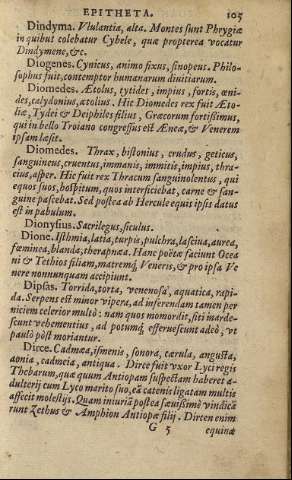 EPITHETA. 105
Dindyma. Vlulantia, alta. Montes sunt Phrygiæ
in quibus colebatur Cybele, quæ propterea vocatur
Dindymene, &c.
Diogenes. Cynicus, animo fixus, sinopeus. Philo-
sophus fuit, contemptor humanarum diuitiarum.
Diomedes. Ætolus, tytides, impius, fortis, æni-
des, calydonius, ætolius. Hic Diomedes rex fuit Æto-
liæ, Tydei & Deiphiles filius, Græcorum fortissimus,
qui in bello Troiano congressus est Æneæ, & Venerem
ipsam læsit.
Diomedes. Thrax, bistonius, crudus, geticus,
sanguineus, cruentus, immanis, immitis, impius, thra-
cius, asper. Hic fuit rex Thracum sanguinolentus, qui
equos suos, hospitum, quos interficiebat, carne & san-
guine pascebat. Sed postea ab Hercule equis ipsis datus
est in pabulum.
Dionysius. Sacrilegus, siculus.
Dione. Isthmia, latia, turpis, pulchra, lasciua, aurea,
fæminea, blanda, therapnæa. Hanc poëtæ faciunt Ocea
ni & Tethios filiam, matremq́; Veneris, & pro ipsa Ve
nere nonnunquam accipiunt.
Dipsas. Torrida, torta, venenosa, aquatica, rapi-
da. Serpens est minor vipera, ad inferendam tamen per
niciem celerior multò: nam quos momordit, siti inarde-
scunt vehementius, ad potumq́; efferuescunt adeò, vt
paulò pòst moriantur.
Dirce. Cadmæa, ismenis, sonora, cærula, angusta,
aonia, cadmeia, antiqua. Dirce fuit vxor Lyci regis
Thebarum, quæ quum Antiopam suspectam haberet a-
dulterij cum Lyco marito suo, eā catenis ligatam multis
affecit molestijs. Quam iniuriā postea sæuissimè vindica
runt Zethus & Amphion Antiopæ filij. Dircen enim
G 5 equinæ